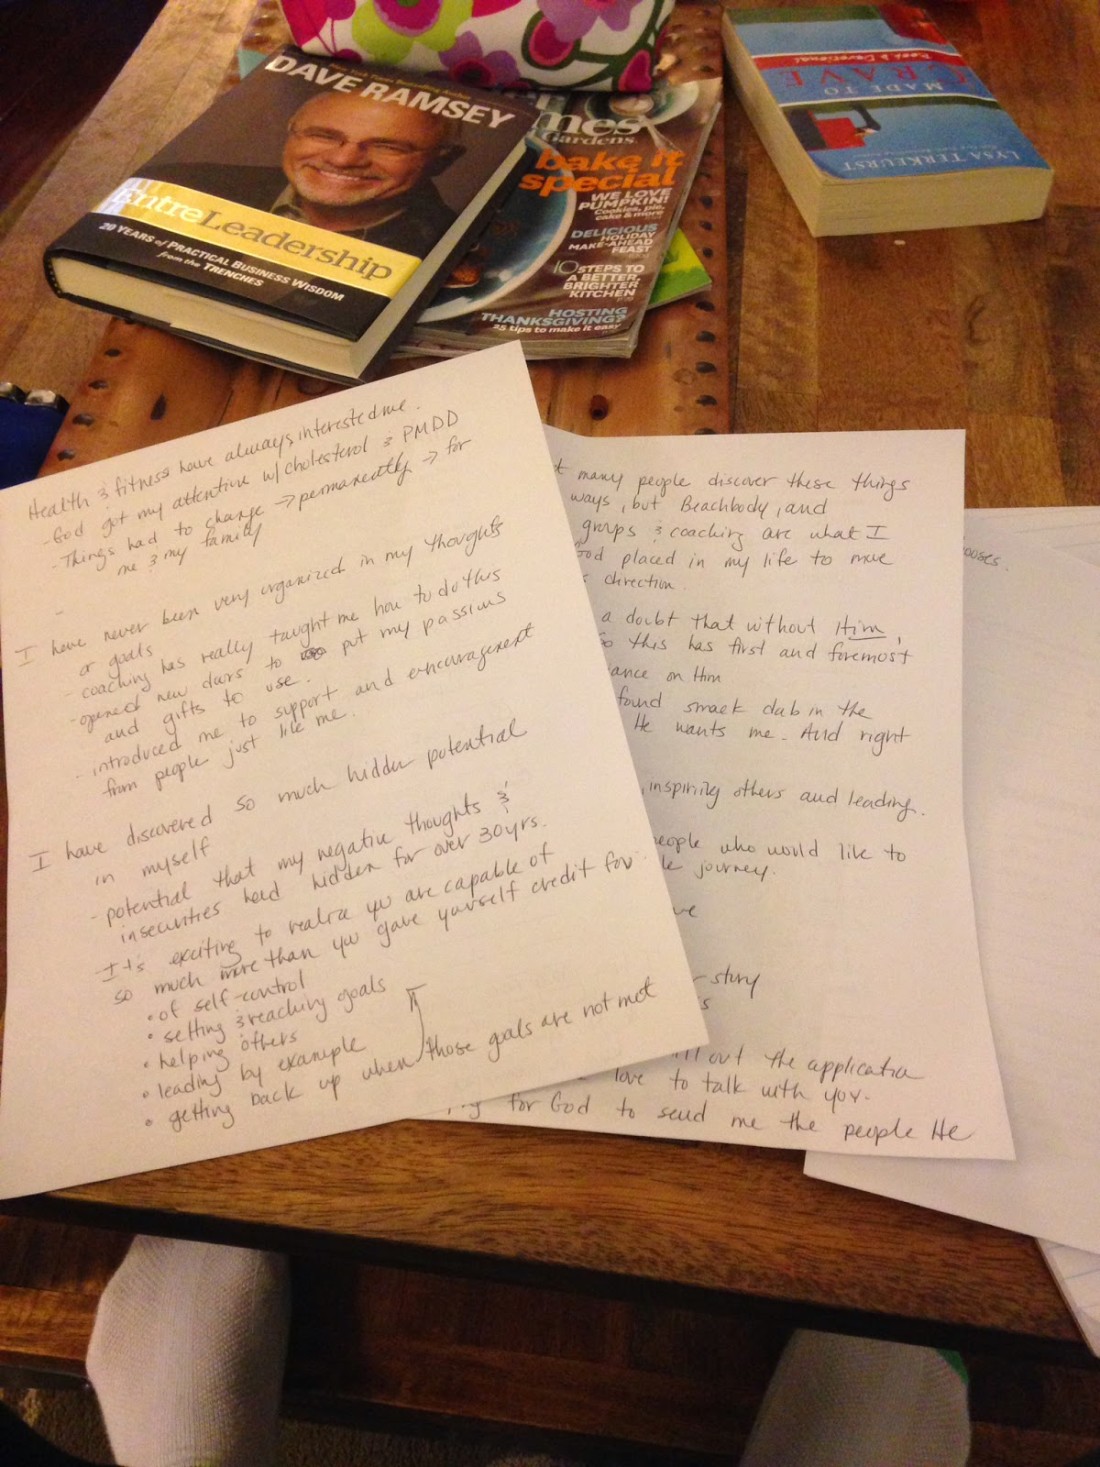 DAVE RAMSEY
EntreLeadership
20 YEARS of PRACTICAL BUSINESS WISDOM
from the TRENCHES
mes
Gardens
bake it
special
WE LOVE
PUMPKIN!
Cookies, pie,
cake & more
DELICIOUS
HOLIDAY
MAKE-AHEAD
FEAST
10 STEPS TO
A BETTER,
BRIGHTER
KITCHEN
HOSTING
THANKSGIVING?
25 tips to make it easy
MADE TO
CRAVE
LYSA TERKEURST
Health & fitness have always interested me.
- God got my attention w/ cholesterol & PMDD
- Things had to change → permanently → for
me & my family
-
I have never been very organized in my thoughts
or goals
- coaching has really taught me how to do this
- opened new doors to put my passions
and gifts to use.
- introduced me to support and encouragement
from people just like me.
I have discovered so much hidden potential
in myself
- potential that my negative thoughts &
insecurities held hidden for over 30 yrs.
It's exciting to realize you are capable of
so much more than you gave yourself credit for
• of self-control
• setting & reaching goals
• helping others
• leading by example
• getting back up when those goals are not met
t many people discover these things
ways, but Beachbody, and
groups & coaching are what I
God placed in my life to move
direction.
a doubt that without Him,
this has first and foremost
iance on Him
found smack dab in the
He wants me. And right
, inspiring others and leading.
people who would like to
journey.
ve
story
s
ill out the application
love to talk with you.
for God to send me the people He
ooses.